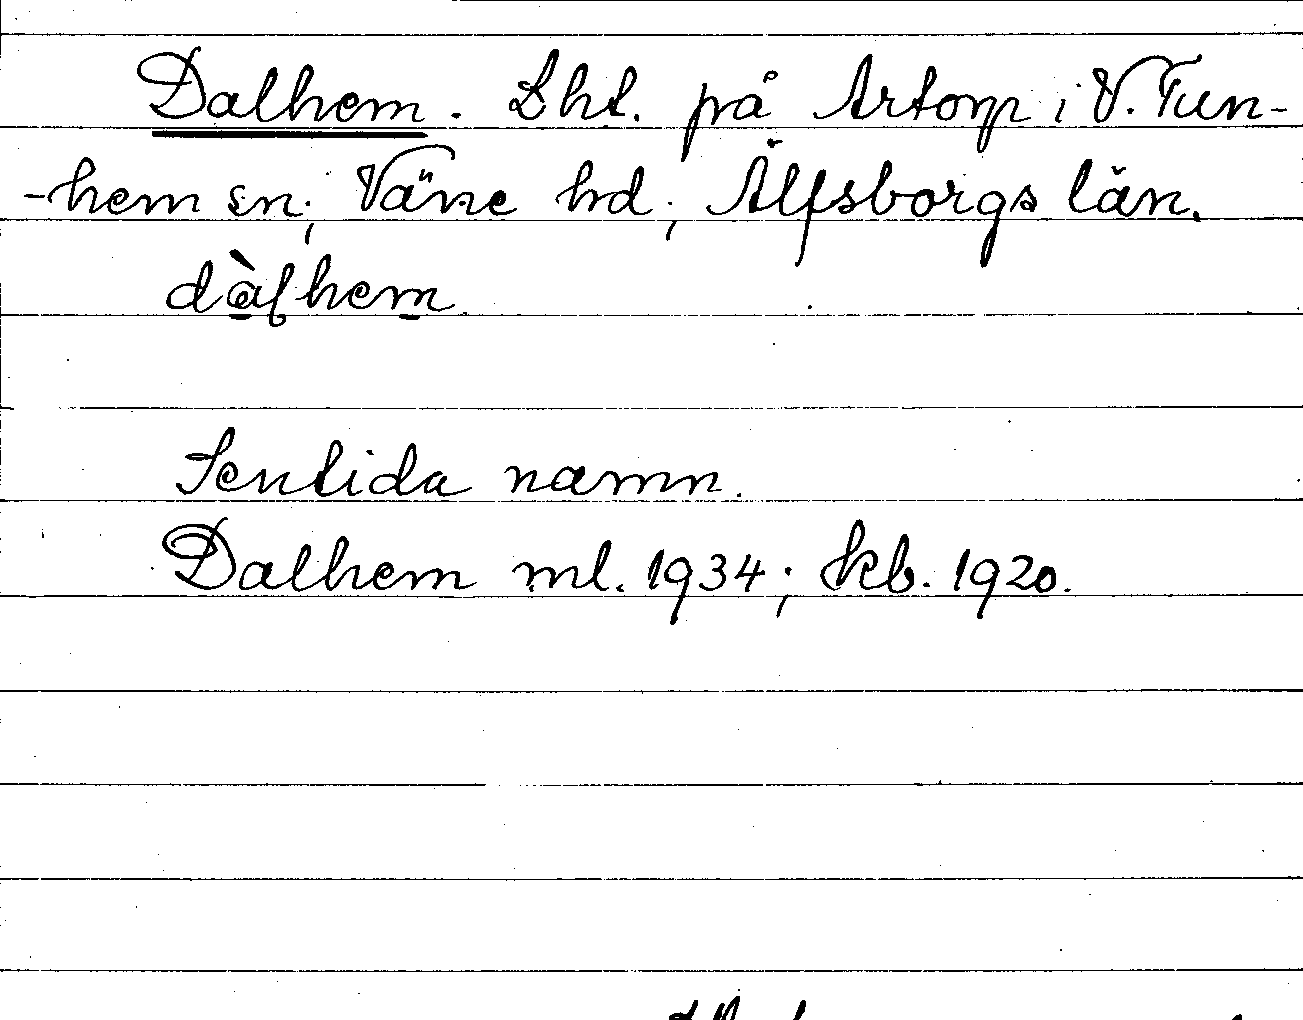 Dalhem. Lht. på Artorp i V. Tun-
-hem sn; Väne hd; Älfsborgs län.
dàlhem.
Sentida namn.
Dalhem ml. 1934; kb. 1920.